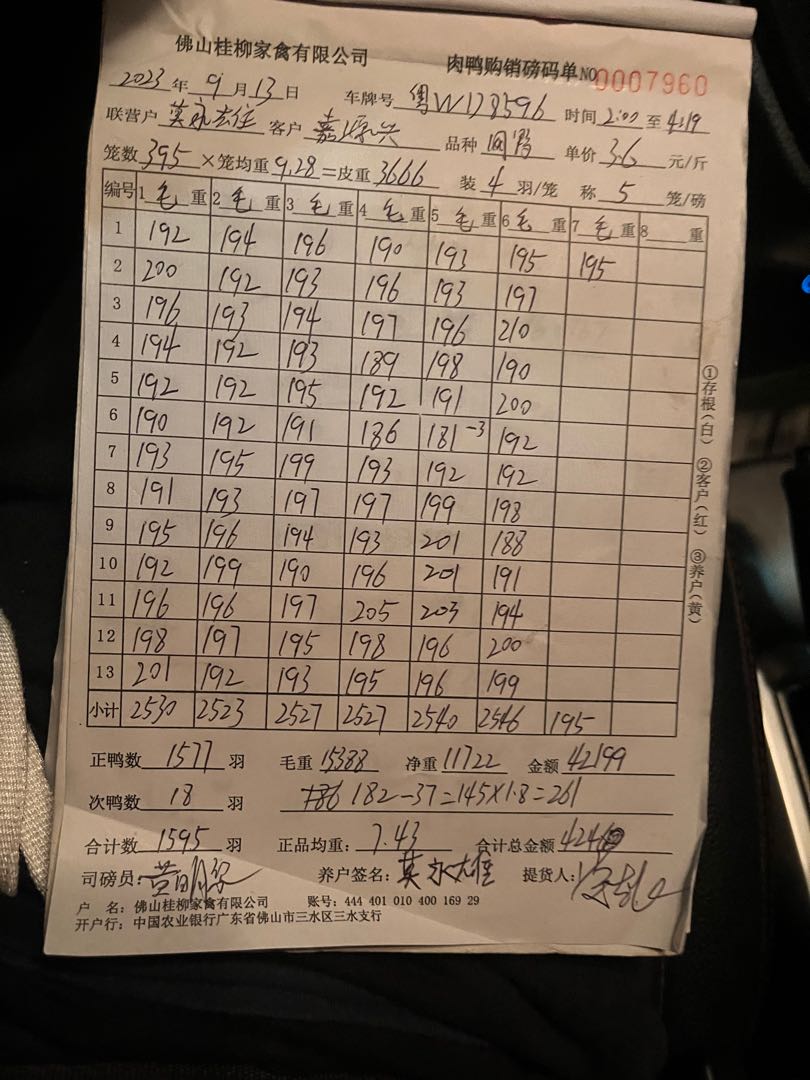 佛山桂柳家禽有限公司 肉鸭购销磅码单 NO 0007960
2023 年 9 月 13 日 车牌号 粤W178596 时间 2:00 至 4:19
联营户 莫永 客户 嘉源兴 品种 单价 3.6 元/斤
笼数 395 ×笼均重 9.28 =皮重 3666 装 4 羽/笼 称 5 笼/磅
编号 1 毛 重 2 毛 重 3 毛 重 4 毛 重 5 毛 重 6 毛 重 7 毛 重 8 重
1 192 194 196 190 193 195 195
2 200 192 193 196 193 197
3 196 193 194 197 196 210
4 194 192 193 189 198 190
5 192 192 195 192 191 200
6 190 192 191 186 181-3 192
7 193 195 199 193 192 192
8 191 193 197 197 199 198
9 195 196 194 193 201 188
10 192 199 190 196 201 191
11 196 196 197 205 203 194
12 198 197 195 198 196 200
13 201 192 193 195 196 199
小计 2530 2523 2527 2527 2540 2546 195
正鸭数 1577 羽 毛重 15388 净重 11722 金额 42199
次鸭数 18 羽 182-37=145×1.8=261
合计数 1595 羽 正品均重: 7.43 合计总金额 42460
司磅员: 黄 养户签名: 莫永 提货人:
户 名: 佛山桂柳家禽有限公司 账号: 444 401 010 400 169 29
开户行: 中国农业银行广东省佛山市三水区三水支行
①存根(白) ②客户(红) ③养户(黄)